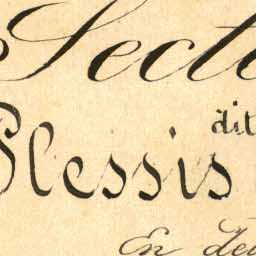 Secti
dit
Plessis
En deu